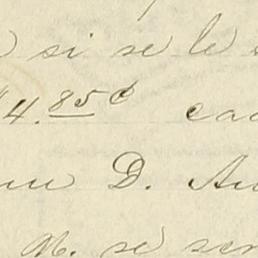 si se le
4.85¢ cad
D. An
M. se ser